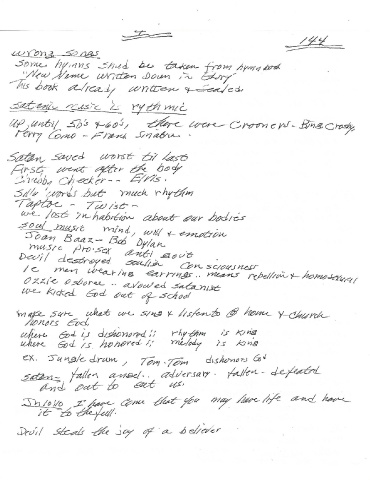 I
144
wrong songs
Some hymns shud be taken from hymn book
"New Name written Down in Glory"
This book already written & sealed
satanic music is rythmic
up until 50's & 60's, there were Crooners - Bing Crosby,
Perry Como - Frank Sinatra.
Satan saved worst til last
First went after the body
Chubby Checker -- Elvis.
Silly words but much rhythm
Twist -
we lost inhabition about our bodies
soul music mind, will & emotion
Joan Baaz - Bob Dylan
music pro-sex anti govt
Devil destroyed Consciousness
ie men wearing earrings.. means rebellion & homosexual
Ozzie osborne .. avowed satanist
we kicked God out of school
make sure what we sing & listen to @ home & church
honors God.
where God is dishonored :: rhythm is king
where God is honored :: melody is king
ex. Jungle drum, Tom-Tom dishonors God
satan - fallen angel.. adversary - fallen - defeated
and out to eat us.
Jn 10:10 I have come that you may have life and have
it to the full.
Devil steals the joy of a believer